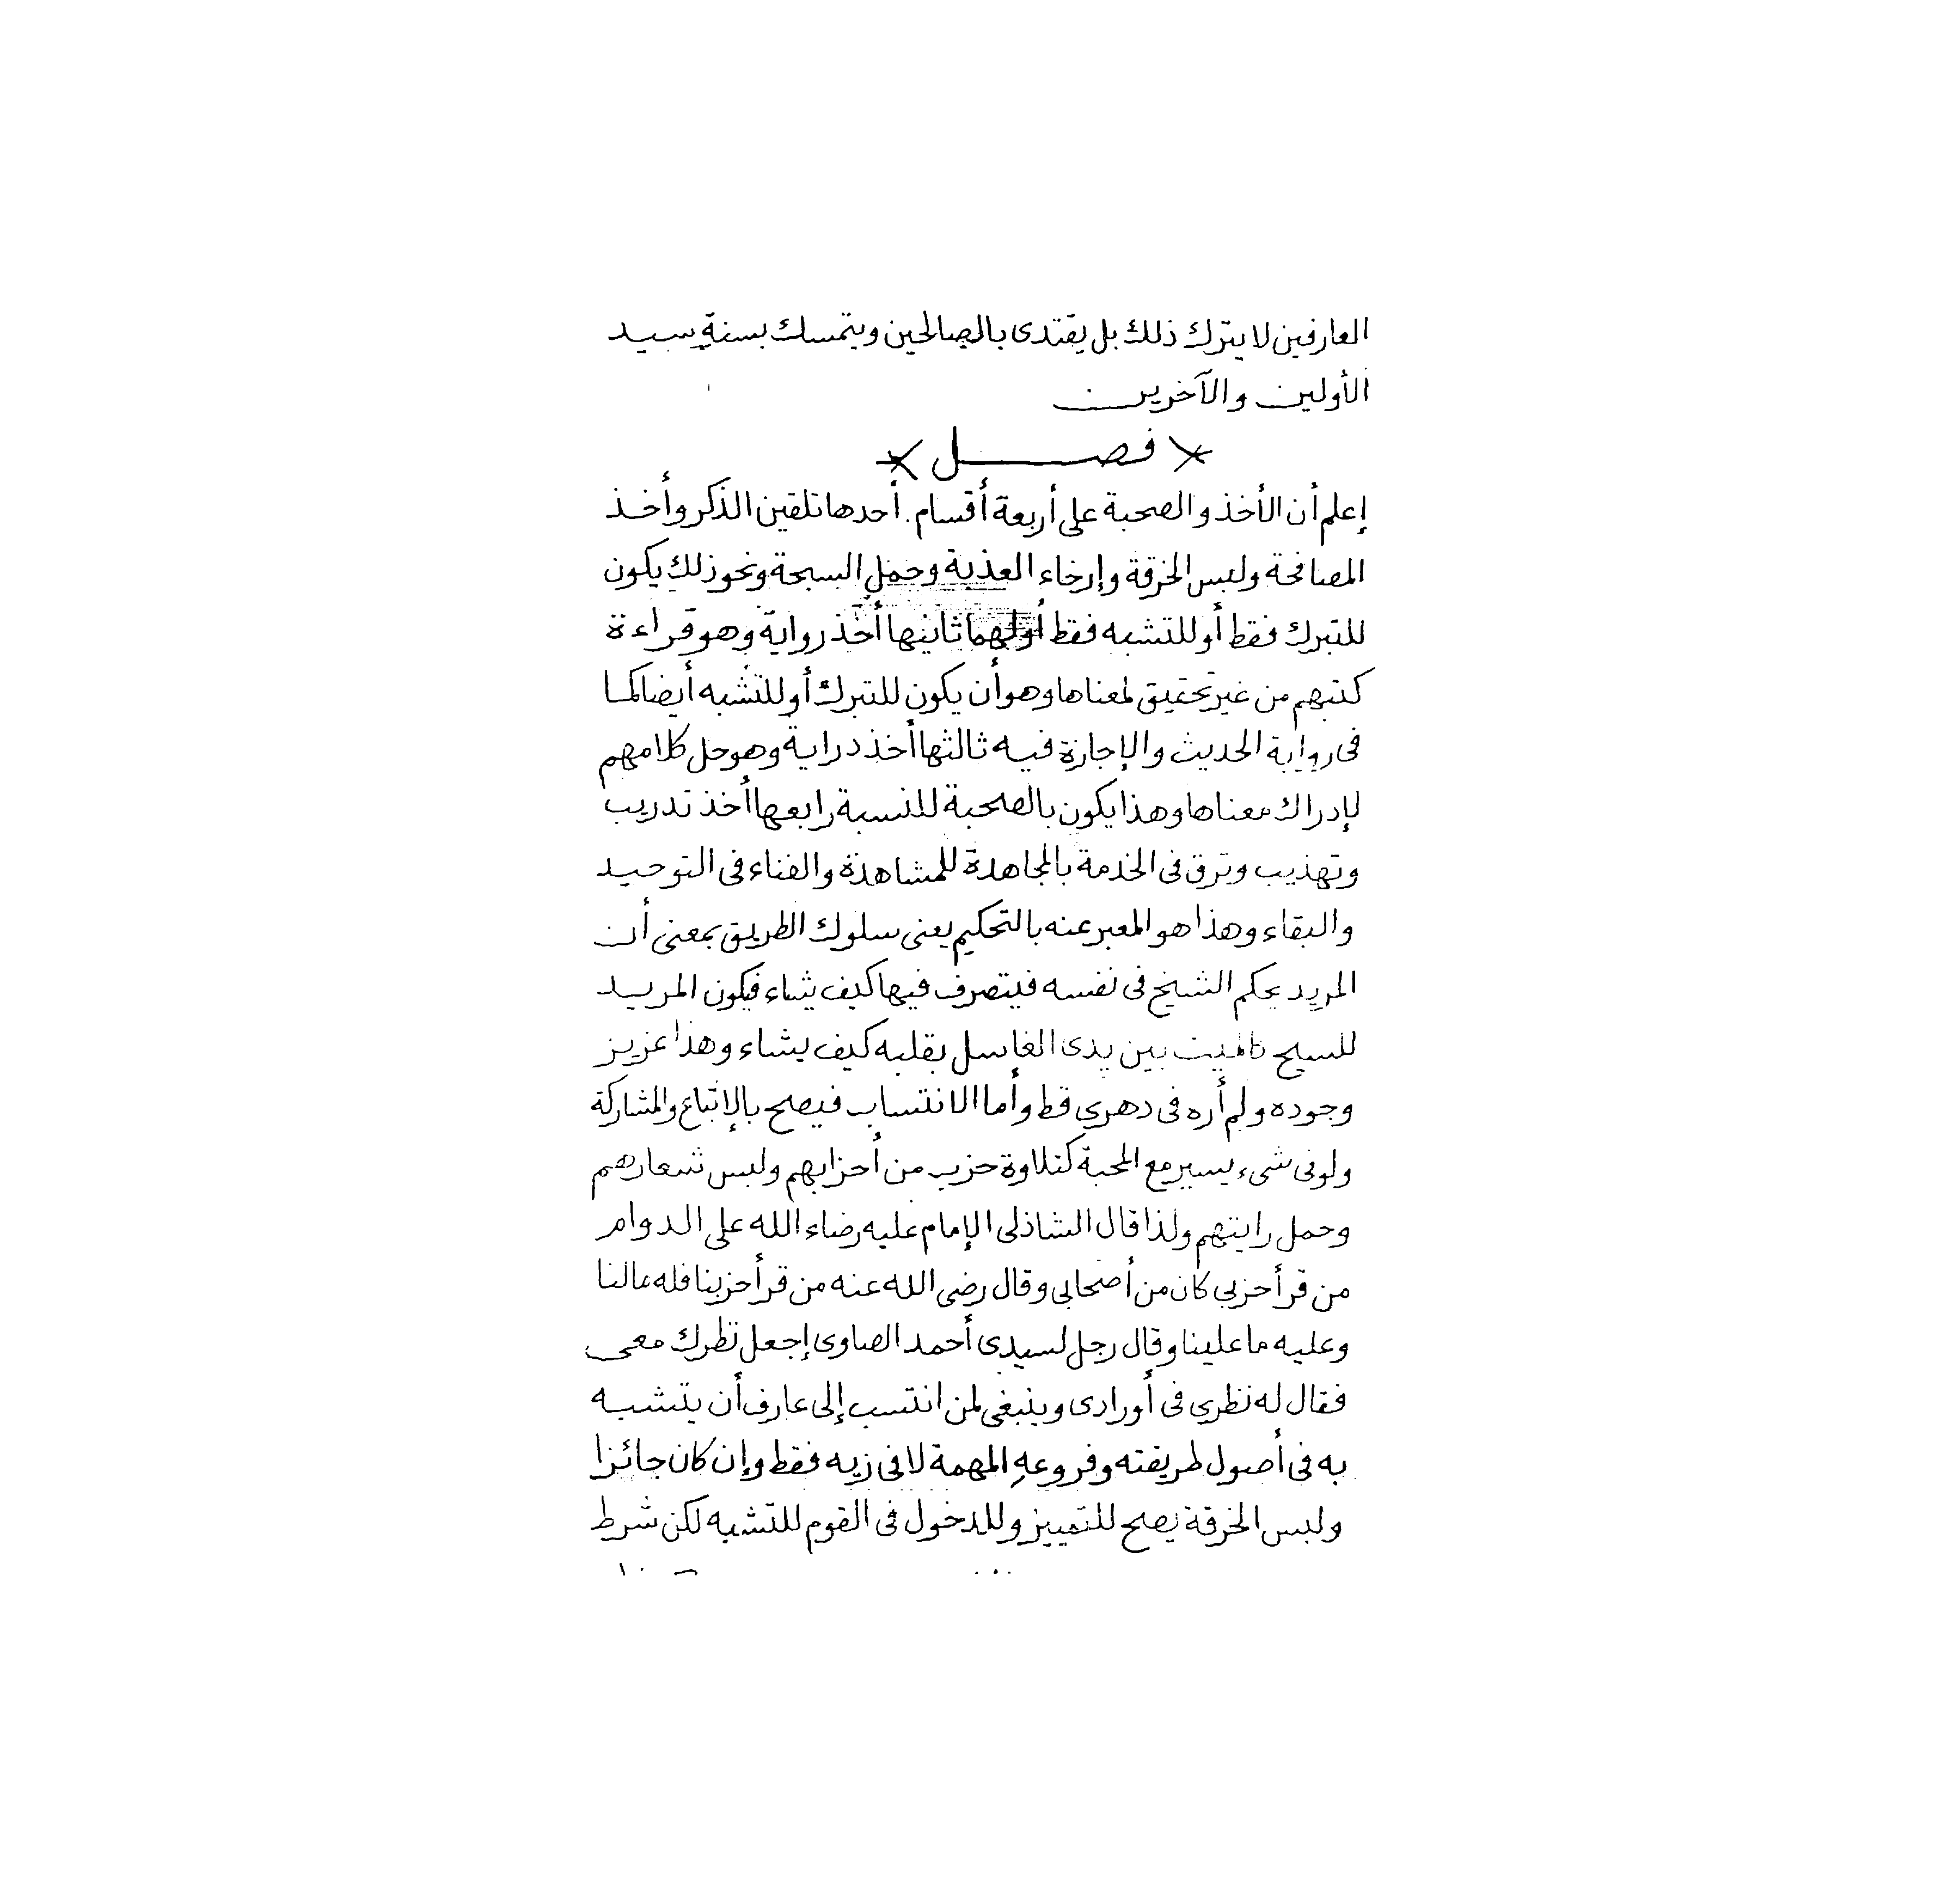 العارفين لا يترك ذلك بل يقتدى بالصالحين ويتمسك بسنة سيد
الأولين والآخرين
* فصل *
إعلم أن الأخذ والصحبة على أربعة أقسام. أحدها تلقين الذكر وأخذ
المصافحة ولبس الخرقة وإرخاء العذبة وحمل السبحة ونحو ذلك يكون
للتبرك فقط أو للتشبه فقط أولهما ثانيها أخذ رواية وهو قراءة
كتبهم من غير تحقيق لمعناها وهو أن يكون للتبرك أو للتشبه أيضا كما
فى رواية الحديث والإجازة فيه ثالثها أخذ دراية وهو حل كلامهم
لإدراك معناها وهذا يكون بالصحبة للنسبة رابعها أخذ تدريب
وتهذيب وترق فى الخدمة بالمجاهدة للمشاهدة والفناء فى التوحيد
والبقاء وهذا هو المعبر عنه بالتحكيم يعنى سلوك الطريق بمعنى أن
المريد يحكم الشيخ فى نفسه فيتصرف فيها كيف يشاء فيكون المريد
للشيخ كالميت بين يدى الغاسل يقلبه كيف يشاء وهذا عزيز
وجوده ولم أره فى دهرى قط وأما الانتساب فيصح بالإتباع والمشاركة
ولو فى شىء يسير مع المحبة كتلاوة حزب من أحزابهم ولبس شعارهم
وحمل رايتهم ولذا قال الشاذلى الإمام عليه رضاء الله على الدوام
من قرأ حزبى كان من أصحابى وقال رضى الله عنه من قرأ حزبنا فله مالنا
وعليه ما علينا وقال رجل لسيدى أحمد الصاوى إجعل نظرك معى
فقال له نظرى فى أورادى وينبغى لمن انتسب إلى عارف أن يتشبه
به فى أصول طريقته وفروعه المهمة لا فى زيه فقط وإن كان جائزا
ولبس الخرقة يصح للتمييز وللدخول فى القوم للتشبه لكن شرط